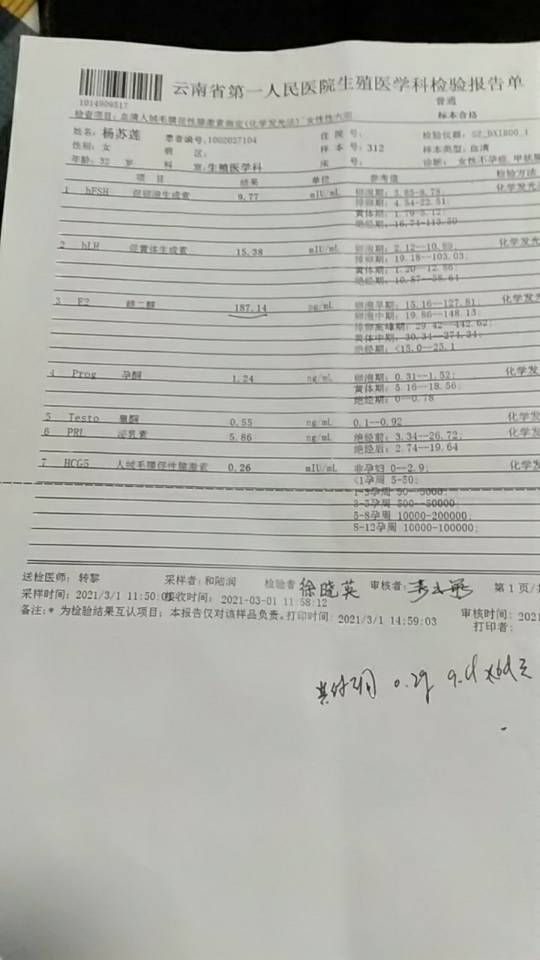 云南省第一人民医院生殖医学科检验报告单
1014909517
普通
检查项目：血清人绒毛膜促性腺激素测定(化学发光法) 女性性六项 标本合格
姓名：杨苏莲 患者编号：1002027104 住院号： 检验仪器：SZ_DXI800_1
性别：女 病区： 样本号：312 样本类型：血清
年龄：32 岁 科室：生殖医学科 床号： 诊断：女性不孕症
项目 结果 单位 参考值 检验方法
1 hFSH 促卵泡生成素 9.77 mIU/mL 卵泡期：3.85-8.78; 化学发光
排卵期：4.54-22.51;
黄体期：1.79-5.12;
绝经期：16.74-113.59
2 hLH 促黄体生成素 15.38 mIU/mL 卵泡期：2.12--10.89; 化学发
排卵期：19.18--103.03;
黄体期：1.20--12.86;
绝经期：10.87--58.64
3 E2 雌二醇 187.14 pg/mL 卵泡早期：15.16--127.81; 化学发
卵泡中期：19.86--148.13;
排卵高峰期：29.42--442.62;
黄体中期：30.34--274.24;
绝经期：<15.0--25.1
4 Prog 孕酮 1.24 ng/mL 卵泡期：0.31--1.52; 化学发
黄体期：5.16--18.56;
绝经期：0--0.78
5 Testo 睾酮 0.55 ng/mL 0.1--0.92 化学发
6 PRL 泌乳素 5.86 ng/mL 绝经前：3.34--26.72; 化学发
绝经后：2.74--19.64
7 HCG5 人绒毛膜促性腺激素 0.26 mIU/mL 非孕妇 0--2.9; 化学
<1孕周 5-50;
5-8孕周 10000-200000;
8-12孕周 10000-100000;
送检医师：转黎 采样者：和陆润 检验者 徐晓英 审核者： 第 1 页/
采样时间：2021/3/1 11:50:0 接收时间：2021-03-01 11:58:12 审核时间：2021
备注：* 为检验结果互认项目；本报告仅对该样品负责。打印时间：2021/3/1 14:59:03 打印者：
0.2g